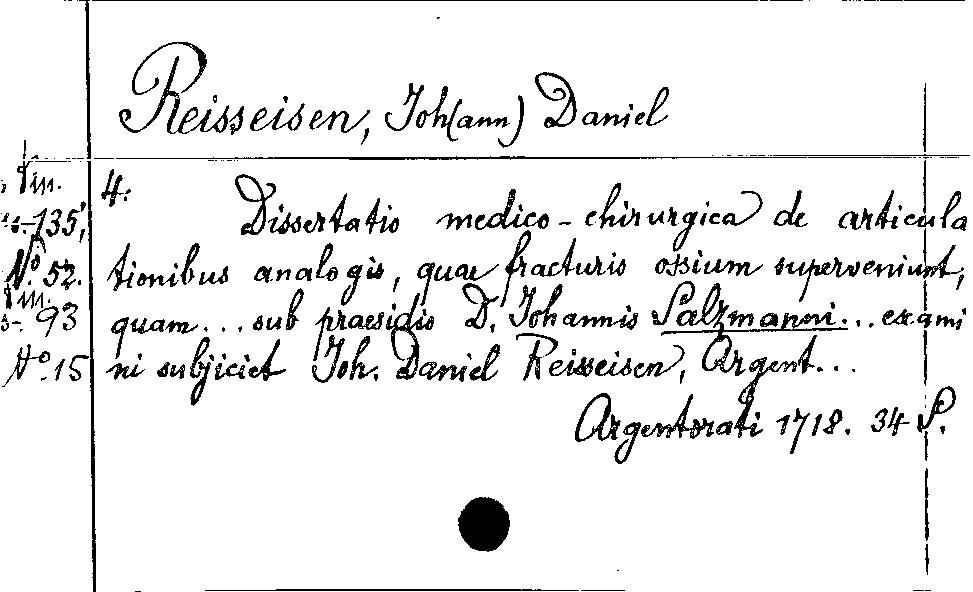 Reisseisen, Joh(ann) Daniel
4:
135,
No. 52.
93
No. 15
Dissertatio medico-chirurgica de articula
tionibus analogis, quae fracturis ossium superveniunt,
quam... sub praesidio D. Johannis Salzmanni... exami
ni subjiciet Joh. Daniel Reisseisen, Argent...
Argentorati 1718. 34 S.